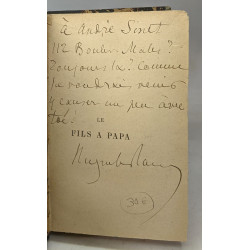 à André
112 Boulev. Males
Toujours là? Comme
je voudrais venir
y causer un peu avec
toi.
LE
FILS A PAPA